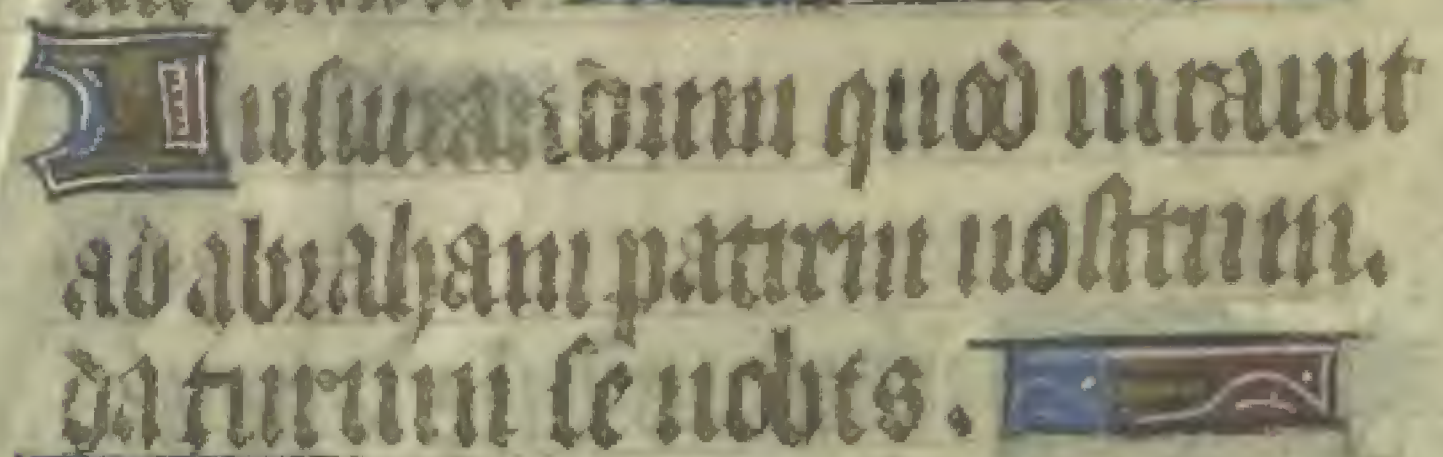 Iusiurandum quod iurauit
ad abraham patrem nostrum.
daturum se nobis.